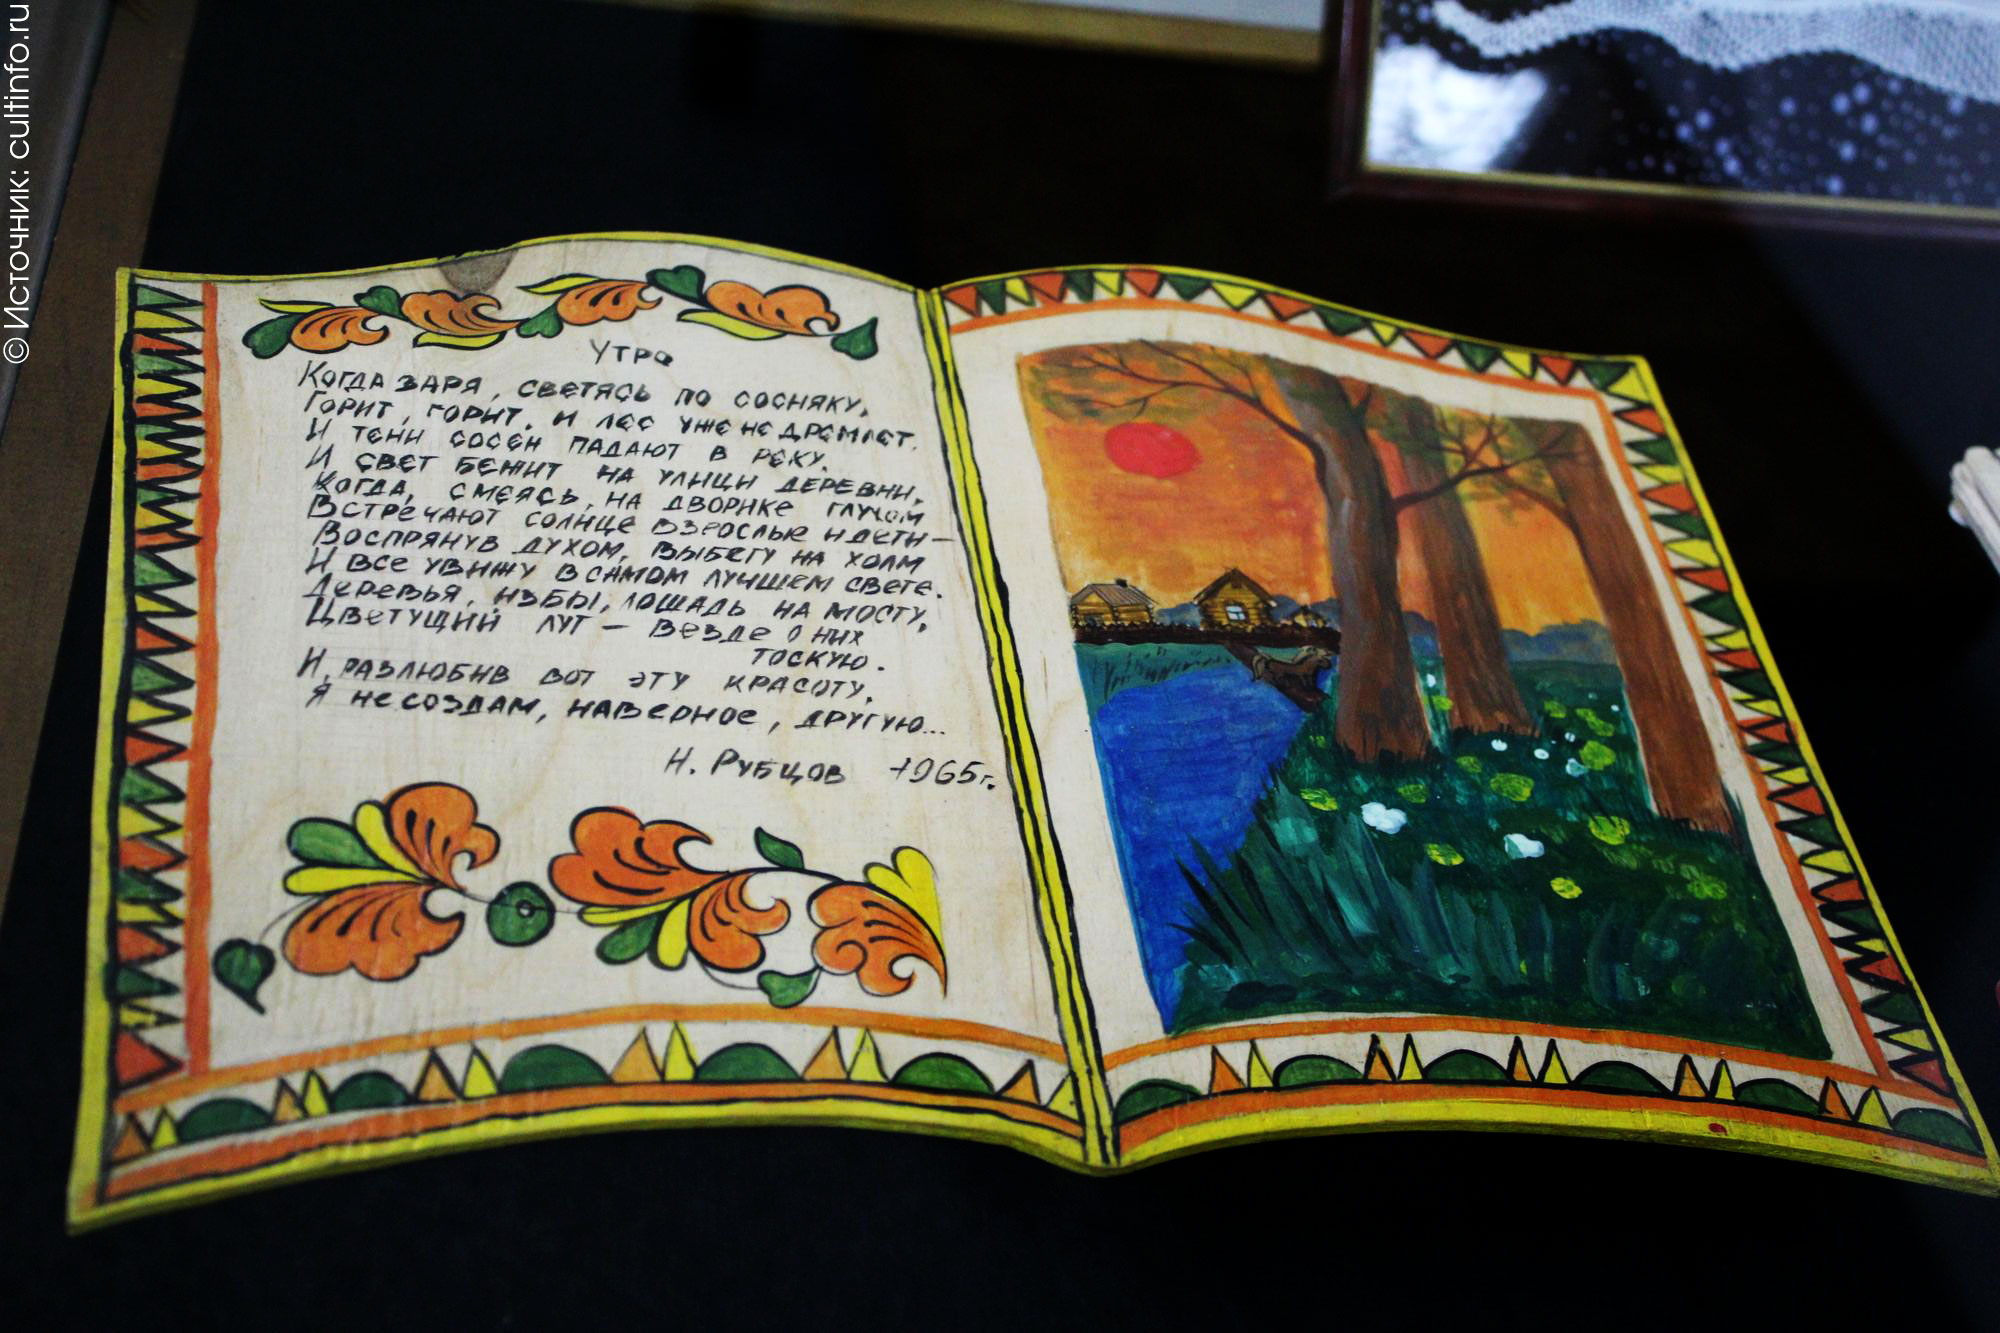 © Источник: cultinfo.ru
Утро
Когда заря, светясь по сосняку,
Горит, горит, и лес уже не дремлет,
И тени сосен падают в реку,
И свет бежит на улицы деревни,
Когда, смеясь, на дворике глухом
Встречают солнце взрослые и дети –
Воспрянув духом, выбегу на холм
И все увижу в самом лучшем свете.
Деревья, избы, лошадь на мосту,
Цветущий луг – везде о них
тоскую.
И, разлюбив вот эту красоту,
Я не создам, наверное, другую...
Н. Рубцов 1965г.